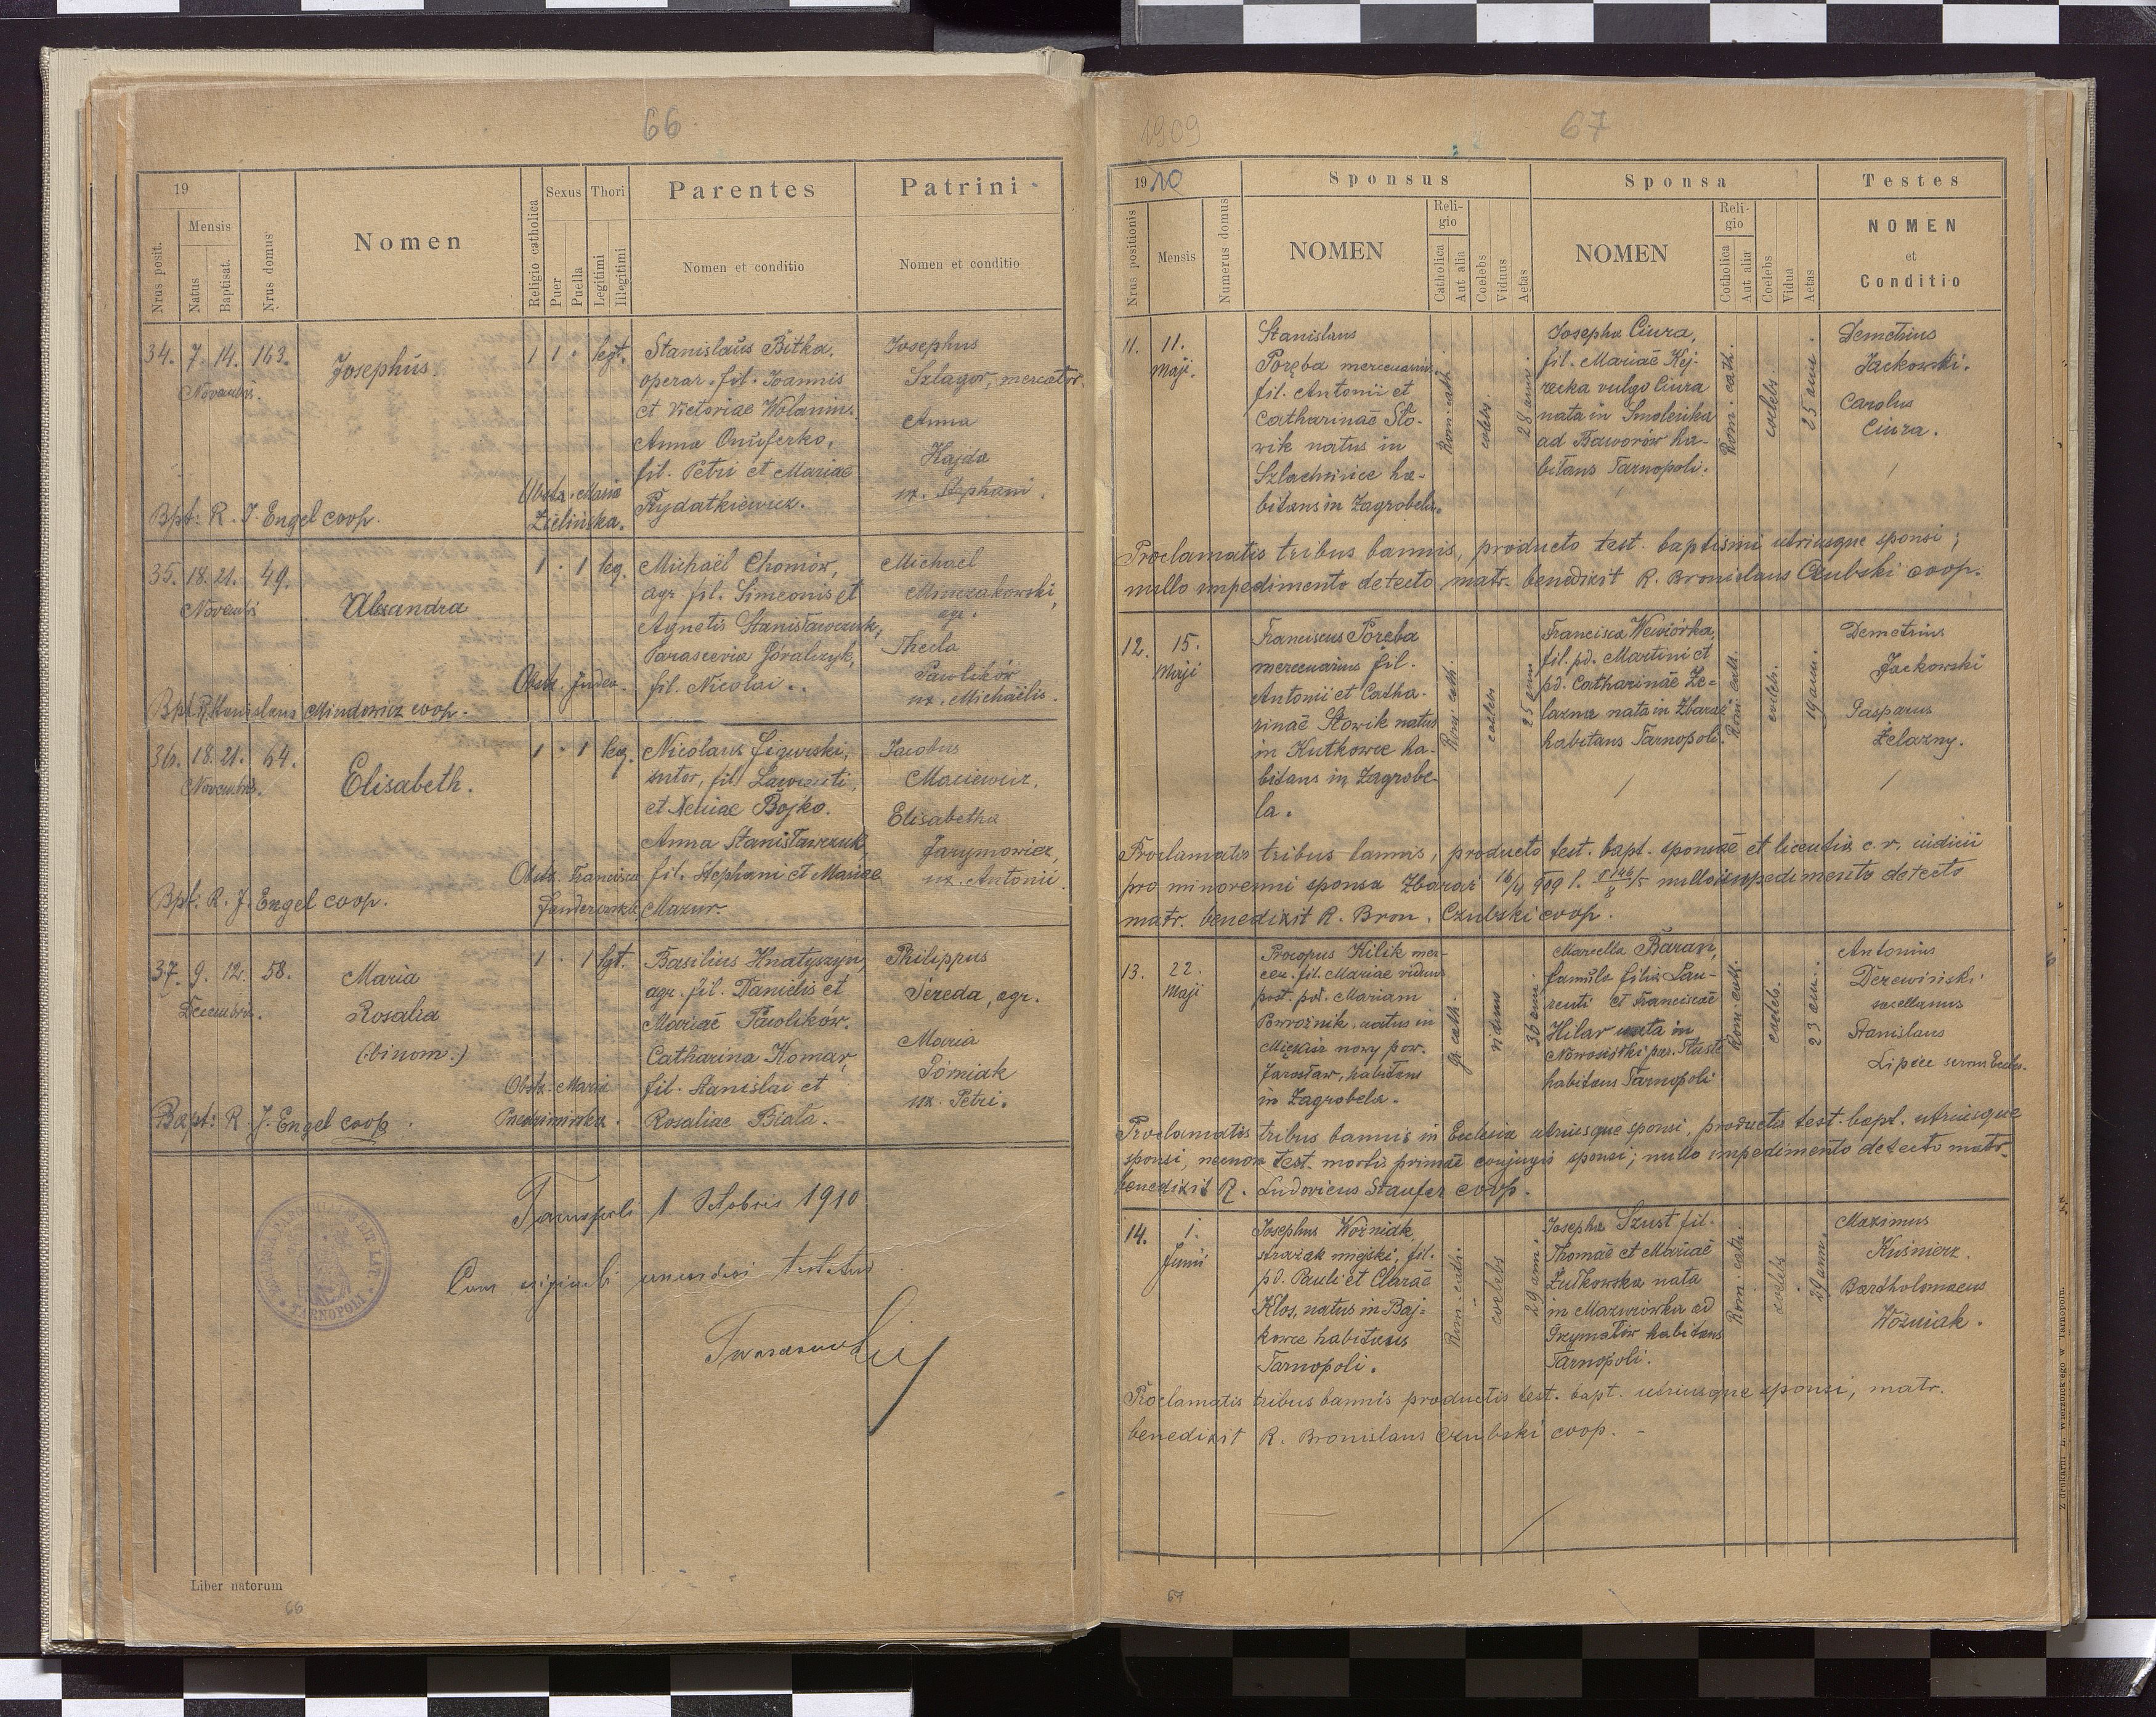 66
19
Mensis
Nrus posit.
Natus
Baptisat.
Nrus domus
Nomen
Religio catholica
Sexus
Puer
Puella
Thori
Legitimi
Illegitimi
Parentes
Nomen et conditio
Patrini
Nomen et conditio
34. 7. 14. 163.
Novembris.
Josephus
1 1 · legt.
Stanislaus Bitka,
operar. fil. Joannis
et Victoriae Wolanin.
Anna Onuferko,
fil. Petri et Mariae
Rydatkiewicz.
Josephus
Szlagor, mercator.
Anna
Hajda
ux. Stephani.
Obstr. Maria
Zielińska.
Bpt: R. J. Engel coop.
35. 18. 21. 49.
Novembris
Alexandra
1 · 1 leg.
Michaël Chomów,
agr. fil. Simeonis et
Agnetis Stanisławczuk,
Parascevia Góralczyk,
fil. Nicolai..
Michael
agr.
Thecla
Pawlików
ux. Michaëlis.
Obstr. Judea.
Bpt. R. Stanislaus Mindowicz coop.
36. 18. 21. 64.
Novembris.
Elisabeth.
1 · 1 leg.
Nicolaus
sutor, fil. Laurenti,
et Bojko.
Anna Stanisławczuk
fil. Stephani et Mariae
Mazur.
Jacobus
Maciewicz,
Elisabetha
Jarymowicz,
ux. Antonii.
Obstr. Francisca
Bpt: R. J. Engel coop.
37. 9. 12. 58.
Decembris.
Maria
Rosalia
(binom.)
1 · 1 lgt.
Basilius Hnatyszyn,
agr. fil. Danielis et
Mariae Pawlików.
Catharina Komar,
fil. Stanislai et
Rosaliae Biała.
Philippus
Pereda, agr.
Maria
Pómiak
ux. Petri.
Obstr. Maria
Bapt: R. J. Engel coop.
Tarnopoli 1 Octobris 1910
Cum originali concordari testatur
TARNOPOLI
Liber natorum
66
1909
67
1910
Nrus positionis
Mensis
Numerus domus
Sponsus
NOMEN
Religio
Catholica
Aut alia
Coelebs
Viduus
Aetas
Sponsa
NOMEN
Religio
Catholica
Aut alia
Coelebs
Vidua
Aetas
Testes
NOMEN
et
Conditio
11. 11.
Maji.
Stanislaus
Poręba mercenarius
fil. Antonii et
Catharinae Sło-
wik natus in
Szlachcince ha-
bitans in Zagrobela.
Rom. cath.
coelebs
28 ann.
Josepha Ciura,
fil. Mariae Kej-
recka vulgo Ciura
nata in Smolanka
ad Baworów ha-
bitans Tarnopoli.
Rom. cath.
coelebs.
25 ann.
Demetrius
Jackowski.
Carolus
Ciura.
Proclamatis tribus bannis, producto test. baptismi utriusque sponsi;
nullo impedimento detecto matr. benedixit R. Bronislaus Czubski coop.
12. 15.
Maji
Franciscus Poręba
mercenarius fil.
Antonii et Catha-
rinae Słowik natus
in Kutkowce ha-
bitans in Zagrobe-
la.
Rom. cath.
coelebs
25 ann
Francisca Wewiórka,
fil. pd. Martini et
pd. Catharinae Że-
lazna nata in Zbaraż
habitans Tarnopoli.
Rom. cath.
coeleb.
19 ann.
Demetrius
Jackowski
Gasparus
Żelazny.
Proclamatis tribus bannis, producto test. bapt. sponsae et licentia c. r. iudicii
pro minorenni sponsa Zbaraż 16/4 909 l. nullo impedimento detecto
matr. benedixit R. Bron. Czubski coop.
13. 22.
Maji
Procopus Kilik mer-
cen. fil. Mariae viduus
post. pd. Mariam
Powroźnik natus in
nowy pow.
Jarosław, habitans
in Zagrobela.
Gr. cath.
viduus
36 ann.
Marcella Baran,
famula filia Lau-
renti et Franciscae
Hilar nata in
Nowosiółki par. Tłuste
habitans Tarnopoli
Rom. cath.
coeleb.
23 ann.
Antonius
Derewiński
sacellanus
Stanislaus
Lipiec servus Eccles.
Proclamatis tribus bannis in Ecclesia utriusque sponsi, productis test. bapt. utriusque
sponsi, necnon test. mortis primae conjugis sponsi; nullo impedimento detecto matr.
benedixit R. Ludovicus Staufer coop.
14. 1.
Junii
Josephus Woźniak,
strażak miejski, fil.
pd. Pauli et Clarae
Kłos, natus in Baj-
kowce habitans
Tarnopoli.
Rom. cath.
coelebs
29 ann.
Josepha Szust fil.
Thomae et Mariae
Żułkowska nata
in Mazurówka ad
Grzymałów habitans
Tarnopoli.
Rom. cath.
coelebs
29 ann.
Maximus
Kuśnierz.
Bartholomaeus
Woźniak.
Proclamatis tribus bannis productis test. bapt. utriusque sponsi, matr.
benedixit R. Bronislaus Czubski coop. -
67
Z drukarni L. Wierzbickiego w Tarnopolu.